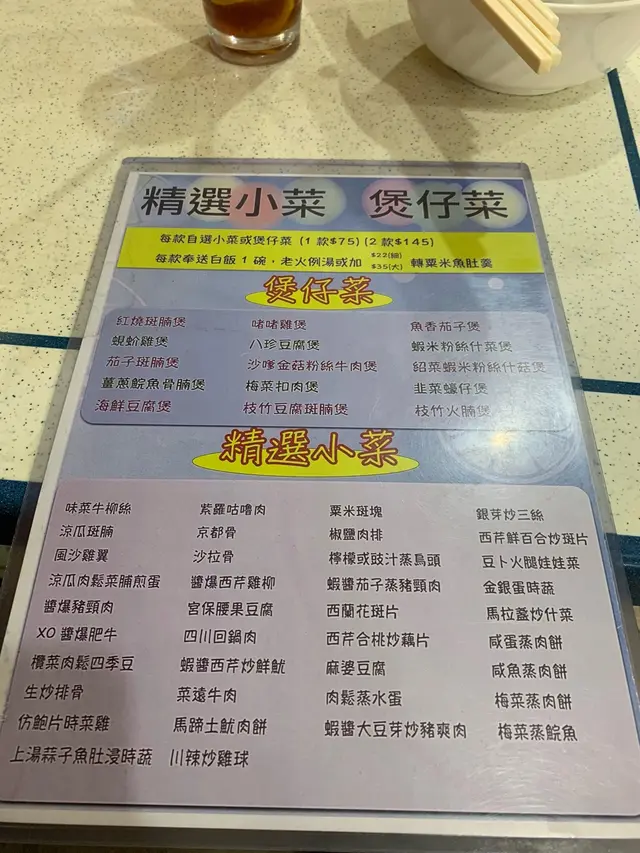 精選小菜 煲仔菜
每款自選小菜或煲仔菜 (1 款$75) (2 款$145)
每款奉送白飯 1 碗，老火例湯或加 $22(細) $35(大) 轉粟米魚肚羹
煲仔菜
紅燒斑腩煲 啫啫雞煲 魚香茄子煲
蜆蚧雞煲 八珍豆腐煲 蝦米粉絲什菜煲
茄子斑腩煲 沙嗲金菇粉絲牛肉煲 紹菜蝦米粉絲什菇煲
薑蔥鯇魚骨腩煲 梅菜扣肉煲 韭菜蠔仔煲
海鮮豆腐煲 枝竹豆腐斑腩煲 枝竹火腩煲
精選小菜
味菜牛柳絲 紫羅咕嚕肉 粟米斑塊 銀芽炒三絲
涼瓜斑腩 京都骨 椒鹽肉排 西芹鮮百合炒斑片
風沙雞翼 沙拉骨 檸檬或豉汁蒸烏頭 豆卜火腿娃娃菜
涼瓜肉鬆菜脯煎蛋 醬爆西芹雞柳 蝦醬茄子蒸豬頸肉 金銀蛋時蔬
醬爆豬頸肉 宮保腰果豆腐 西蘭花斑片 馬拉盞炒什菜
XO 醬爆肥牛 四川回鍋肉 西芹合桃炒藕片 咸蛋蒸肉餅
欖菜肉鬆四季豆 蝦醬西芹炒鮮魷 麻婆豆腐 咸魚蒸肉餅
生炒排骨 菜遠牛肉 肉鬆蒸水蛋 梅菜蒸肉餅
仿鮑片時菜雞 馬蹄土魷肉餅 蝦醬大豆芽炒豬爽肉 梅菜蒸鯇魚
上湯蒜子魚肚浸時蔬 川辣炒雞球